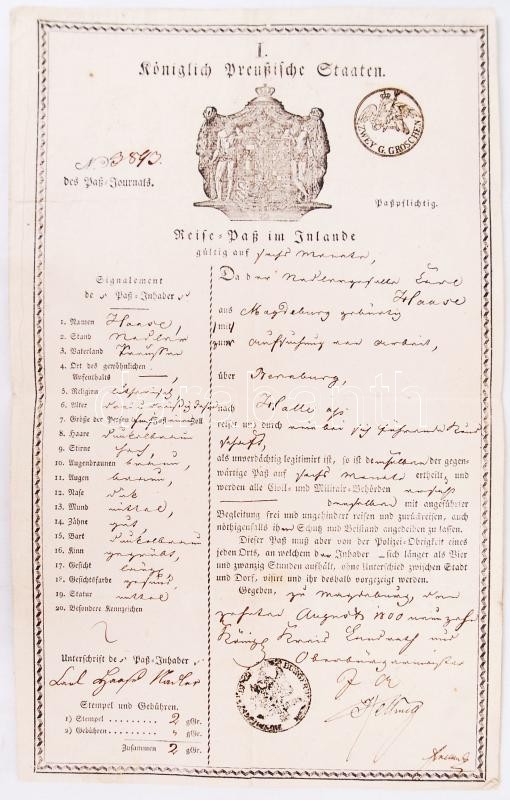 I.
Königlich Preußische Staaten.
ZWEY G. GROSCHEN
No 3893.
des Paß-Journals.
Paßpflichtig.
Reise-Paß im Inlande
gültig auf sechs Monate,
Signalement
des Paß-Inhaber s
1. Namen Haase,
2. Stand Nadler
3. Vaterland Preussen
4. Ort des gewöhnlichen
Aufenthalts
5. Religion lutherisch
6. Alter
7. Größe der Person fünf Fuß Zoll
8. Haare Dunkelbraun
9. Stirne hoch,
10. Augenbraunen braun,
11. Augen braun,
12. Nase dick
13. Mund mittel
14. Zähne gut
15. Bart Dunkelbraun
16. Kinn
17. Gesicht
18. Gesichtsfarbe gesund,
19. Statur mittel
20. Besondere Kennzeichen
Unterschrift des Paß-Inhaber s
Carl Haase Nadler
Stempel und Gebühren.
1) Stempel ......... 2 gGr.
2) Gebühren ........ " gGr.
Zusammen 2 gGr.
Da der Nadlergeselle Carl
Haase
aus Magdeburg gebürtig
mit
zum Aufsuchung von Arbeit,
über Bernburg,
nach Halle
reiset und durch eine bei sich führende Kund
schaft,
als unverdächtig legitimirt ist, so ist demselben der gegen-
wärtige Paß auf sechs Monate ertheilt, und
werden alle Civil- und Militair-Behörden ersucht
denselben mit angeführter
Begleitung frei und ungehindert reisen und zurückreisen, auch
nöthigenfalls ihm Schutz und Beistand angedeihen zu lassen.
Dieser Paß muß aber von der Polizei-Obrigkeit eines
jeden Orts, an welchem der Inhaber sich länger als Vier
und zwanzig Stunden aufhält, ohne Unterschied zwischen Stadt
und Dorf, visirt und ihr deshalb vorgezeigt werden.
Gegeben, zu Magdeburg den
zehnten August 1800 neunzehn
Königl Kreis Landrath und
Oberbürgermeister